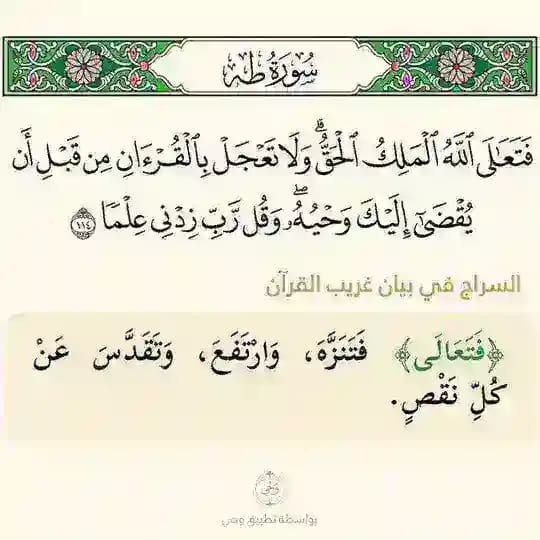 سُورَةُ طه
فَتَعَٰلَى ٱللَّهُ ٱلْمَلِكُ ٱلْحَقُّۗ وَلَا تَعْجَلْ بِٱلْقُرْءَانِ مِن قَبْلِ أَن
يُقْضَىٰٓ إِلَيْكَ وَحْيُهُۥۖ وَقُل رَّبِّ زِدْنِي عِلْمًا ١١٤
السراج في بيان غريب القرآن
﴿فَتَعَالَى﴾ فَتَنَزَّهَ، وَارْتَفَعَ، وَتَقَدَّسَ عَنْ
كُلِّ نَقْصٍ.
وحي
بواسطة تطبيق وحي